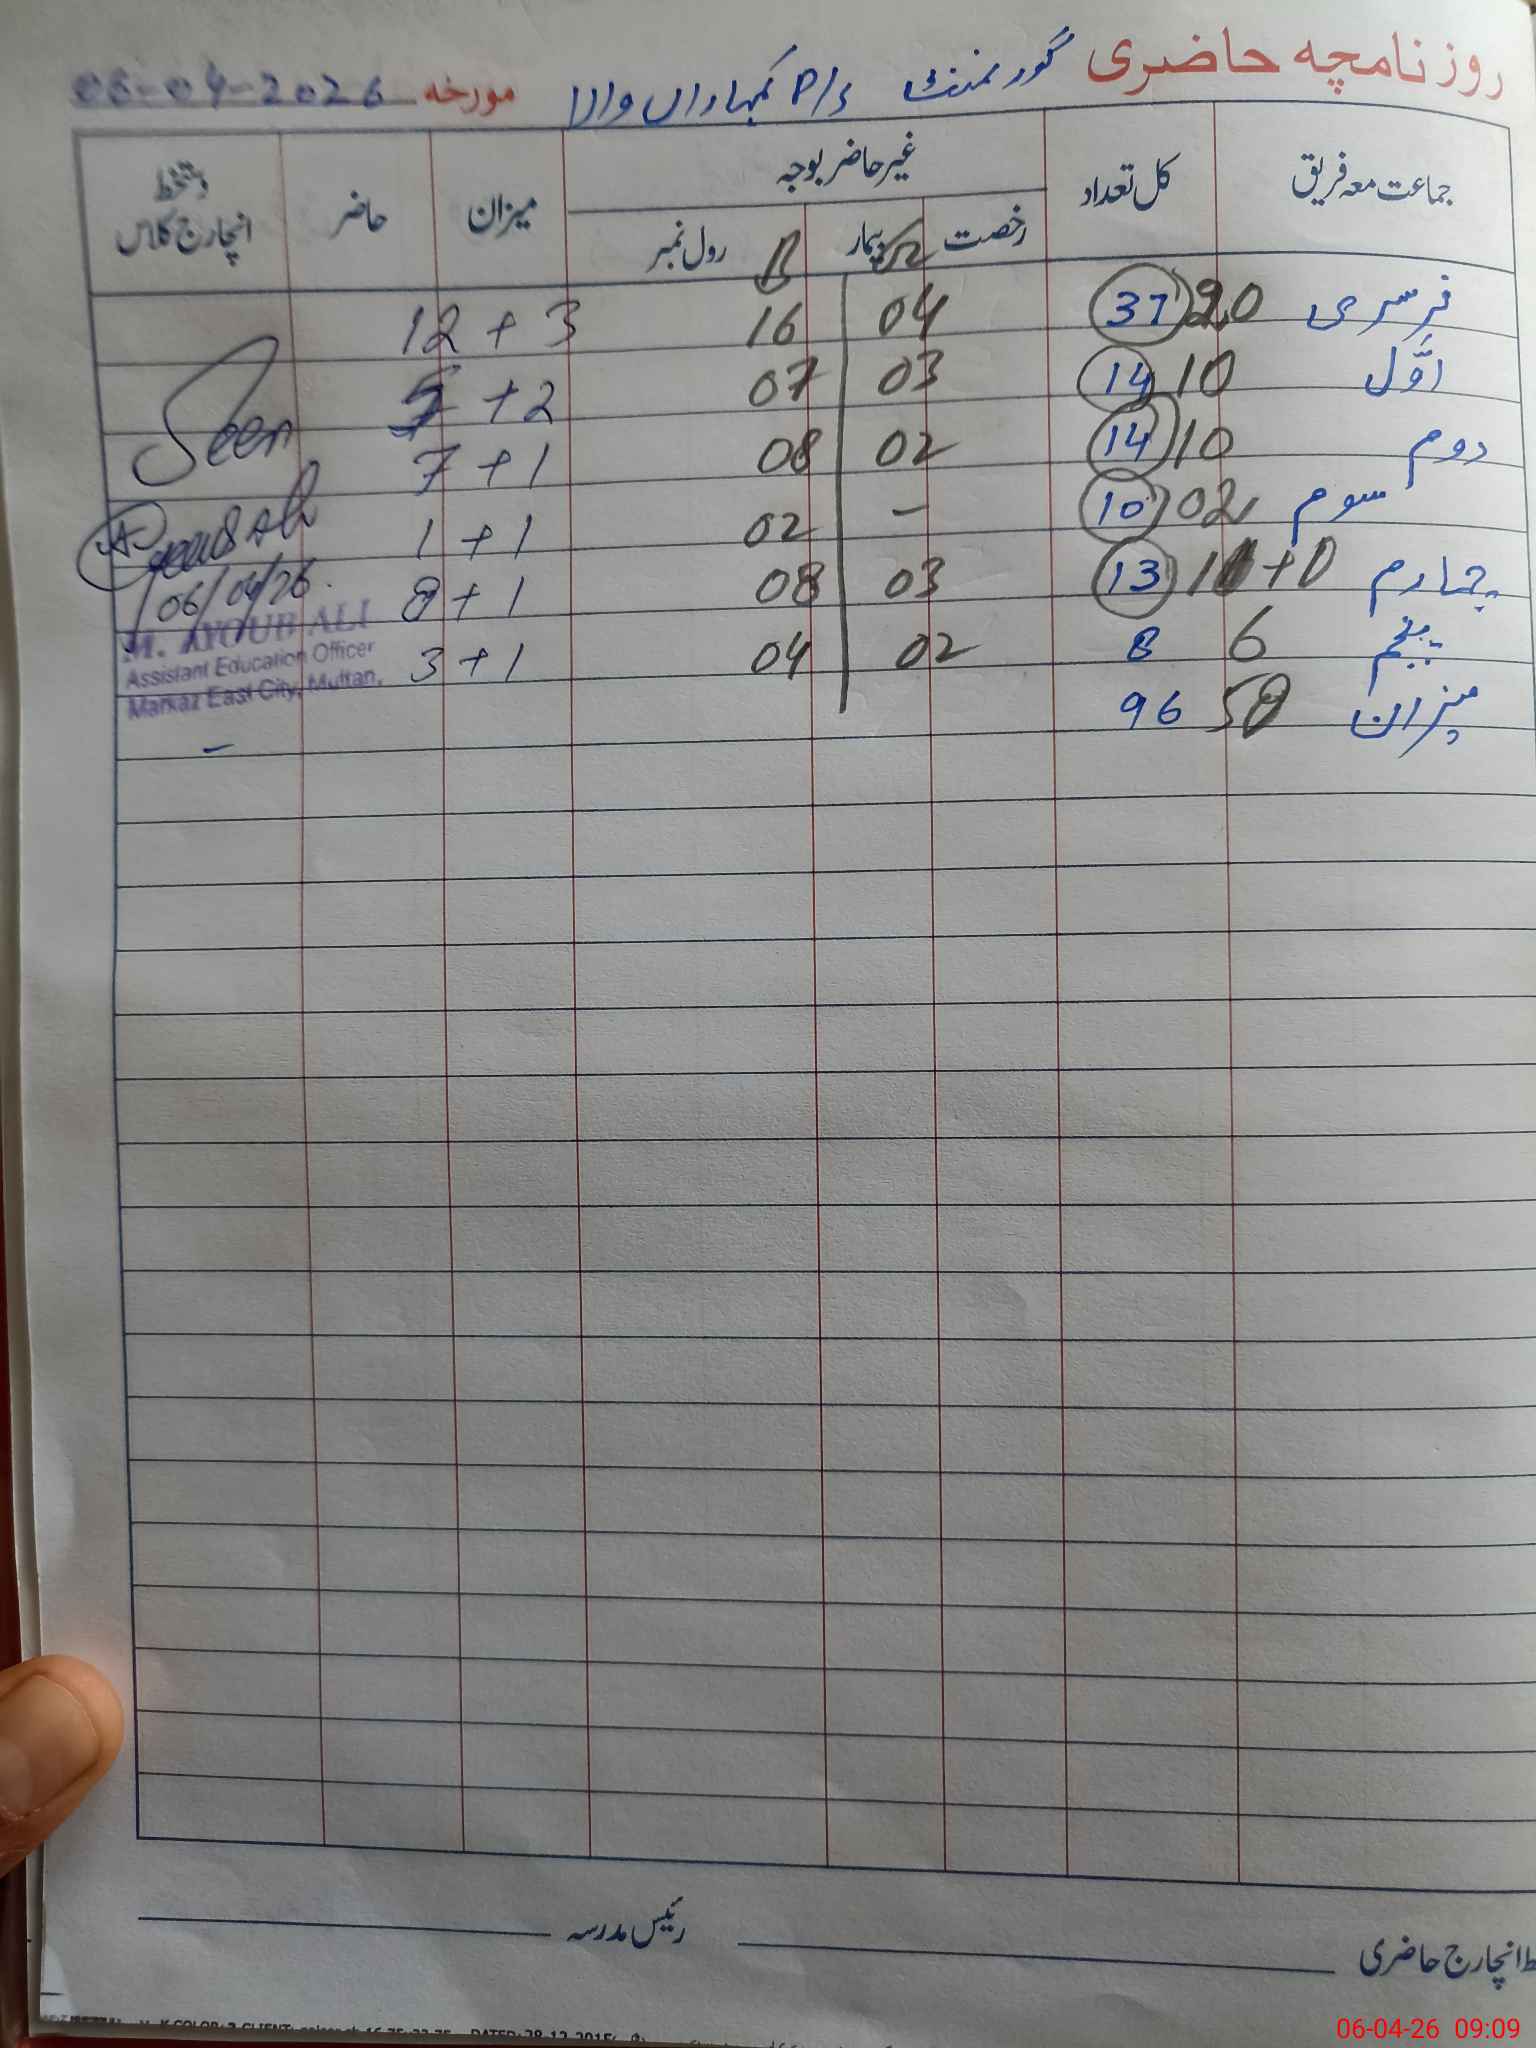 روزنامچہ حاضری گورنمنٹ P/s کمہاراں والا مورخہ 06-04-2026
جماعت معہ فریق کل تعداد غیر حاضر بوجہ میزان حاضر دستخط انچارج کلاس
رخصت بیمار رول نمبر
نرسری 20 37 04 16 12 + 3
اوّل 10 14 03 07 5 + 2
دوم 10 14 02 08 7 + 1
سوم 02 10 - 02 1 + 1
چہارم 13 03 08 8 + 1
پنجم 6 8 02 04 3 + 1
میزان 58 96
Seen
06/04/26
M. AYOUB ALI
Assistant Education Officer
Markaz East City, Multan.
انچارج حاضری
رئیس مدرسہ
06-04-26 09:09